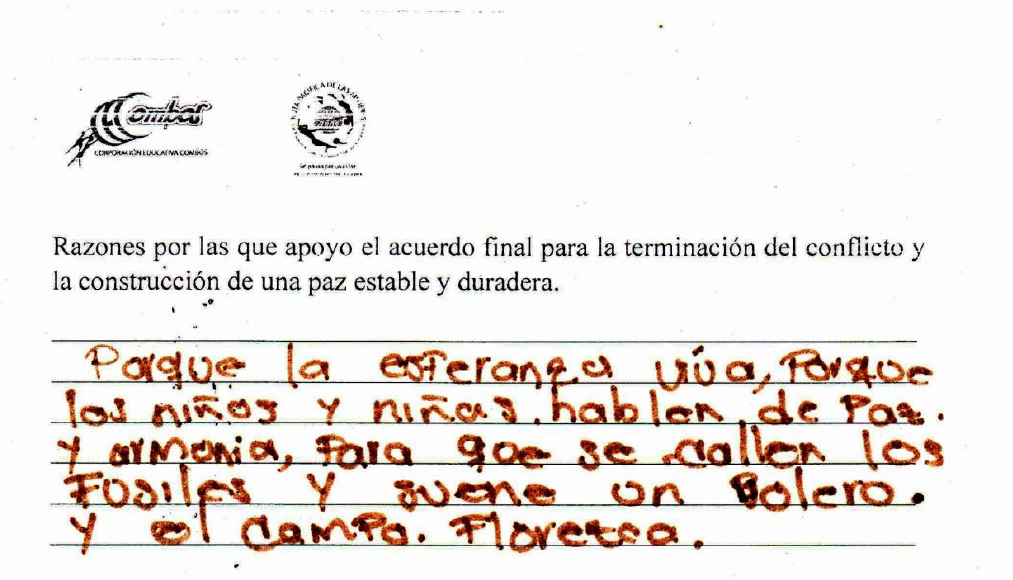 Combos
CORPORACIÓN EDUCATIVA COMBOS
RUTA PACIFICA DE LAS MUJERES
Razones por las que apoyo el acuerdo final para la terminación del conflicto y
la construcción de una paz estable y duradera.
Porque la esperanza viva, Porque
los niños y niñas. hablen de Paz.
y armonia, Para que se callen los
Fusiles y suene un Bolero.
y el campo. Florezca.